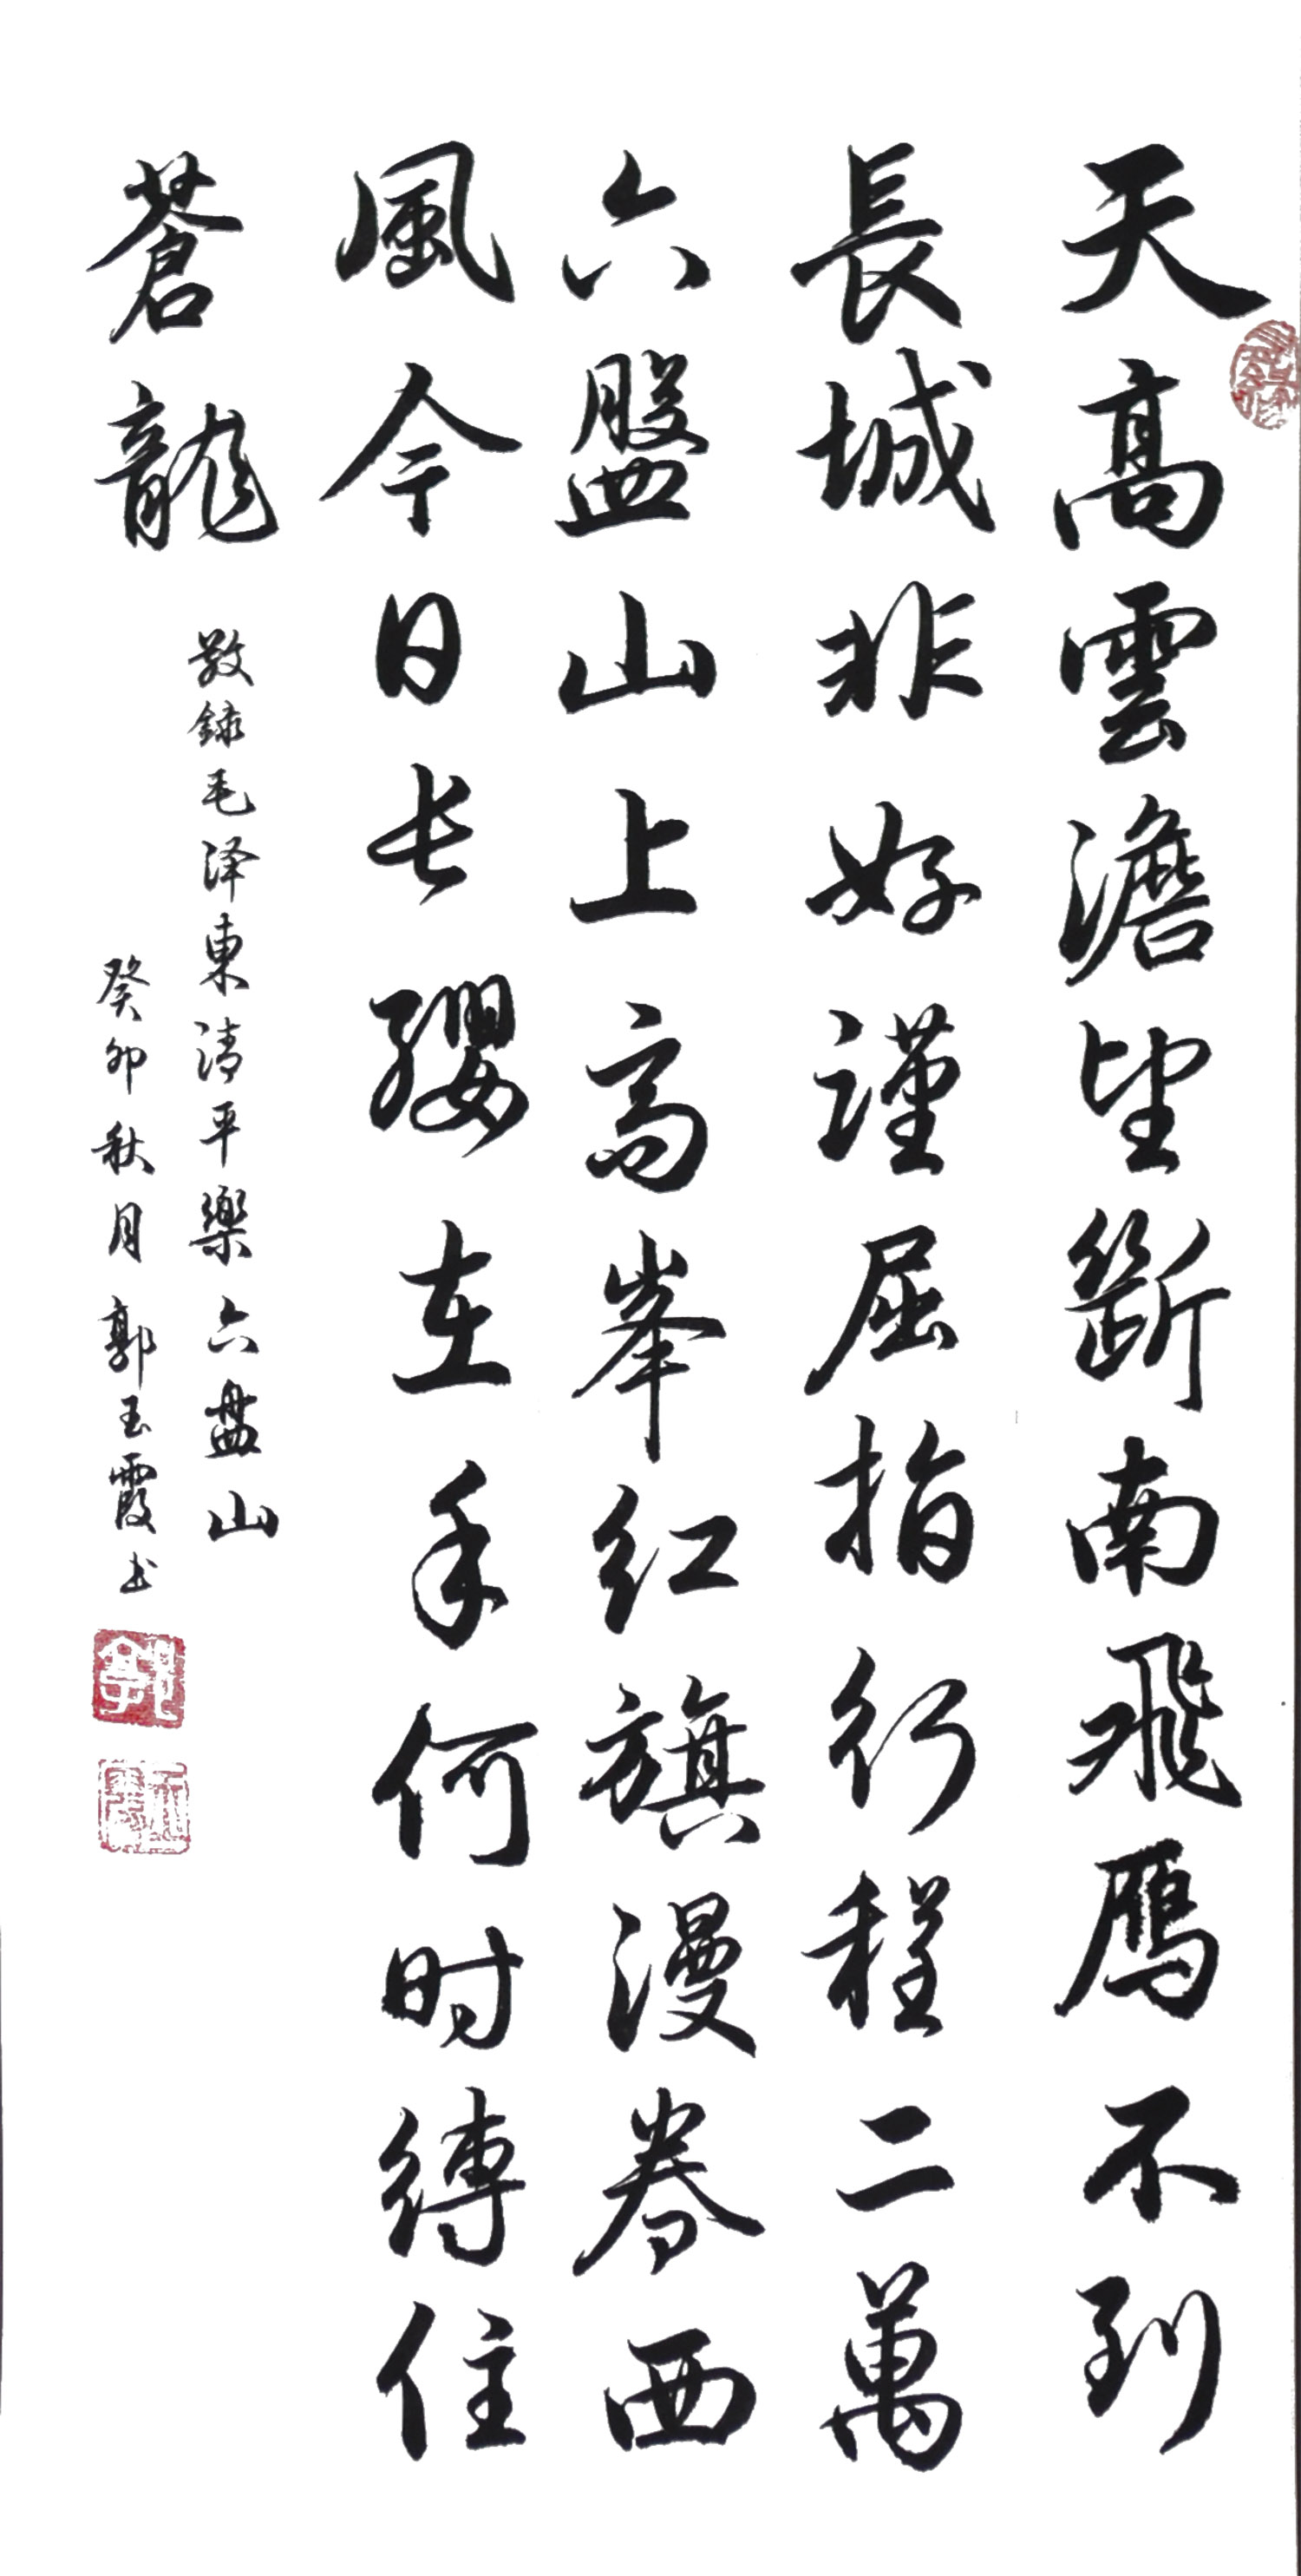 天高雲澹望斷南飛鴈不到
長城非好謹屈指行程二萬
六盤山上高峯红旗漫卷西
風今日长缨在手何时縛住
蒼龍
敬録毛泽東清平樂六盘山
癸卯秋月郭玉霞书